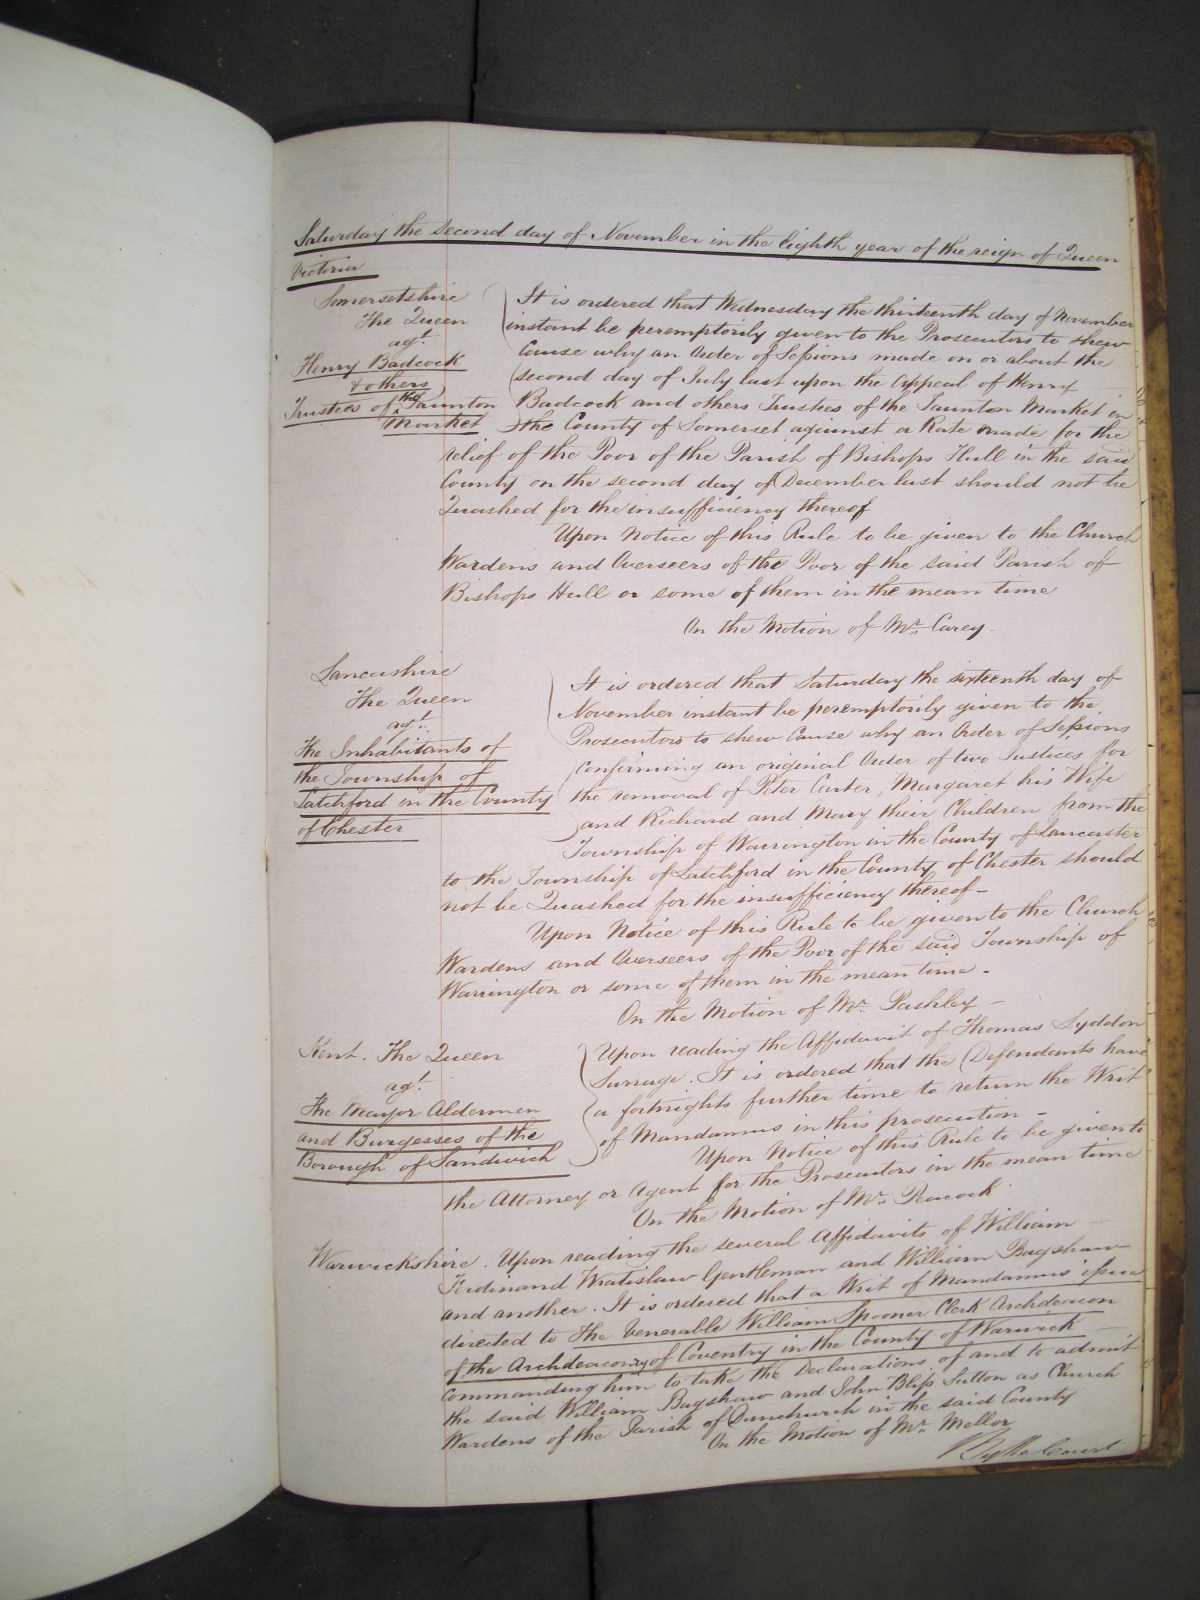 Saturday the Second day of November in the Eighth year of the reign of Queen
Victoria
Somersetshire
The Queen
agt.
Henry Badcock
& others
Trustees of the Taunton
Market
It is ordered that Wednesday the thirteenth day of November
instant be peremptorily given to the Prosecutors to shew
Cause why an Order of Sessions made on or about the
second day of July last upon the Appeal of Henry
Badcock and others Trustees of the Taunton Market in
the County of Somerset against a Rate made for the
relief of the Poor of the Parish of Bishops Hull in the said
County on the second day of December last should not be
Quashed for the insufficiency thereof
Upon Notice of this Rule to be given to the Church
Wardens and Overseers of the Poor of the said Parish of
Bishops Hull or some of them in the mean time
On the Motion of Mr. Carey
Lancashire
The Queen
agt.
The Inhabitants of
the Township of
Latchford in the County
of Chester
It is ordered that Saturday the sixteenth day of
November instant be peremptorily given to the
Prosecutors to shew Cause why an Order of Sessions
Confirming an original Order of two Justices for
the removal of Peter Carter, Margaret his Wife
and Richard and Mary their Children from the
Township of Warrington in the County of Lancaster
to the Township of Latchford in the County of Chester should
not be Quashed for the insufficiency thereof -
Upon Notice of this Rule to be given to the Church
Wardens and Overseers of the Poor of the said Township of
Warrington or some of them in the mean time -
On the Motion of Mr. Pashley -
Kent. The Queen
agt.
The Mayor Aldermen
and Burgesses of the
Borough of Sandwich
Upon reading the Affidavit of Thomas Lyddon
Surrage. It is ordered that the Defendants have
a fortnights further time to return the Writ
of Mandamus in this prosecution -
Upon Notice of this Rule to be given to
the Attorney or Agent for the Prosecutors in the mean time
On the Motion of Mr. Peacock
Warwickshire. Upon reading the several Affidavits of William
Ferdinand Wratislaw Gentleman and William Bagshaw
and another. It is ordered that a Writ of Mandamus issue
directed to The Venerable William Spooner Clerk Archdeacon
of the Archdeaconry of Coventry in the County of Warwick
Commanding him to take the Declarations of and to admit
the said William Bagshaw and John Bliss Sutton as Church
Wardens of the Parish of Dunchurch in the said County
On the Motion of Mr. Mellor
By the Court